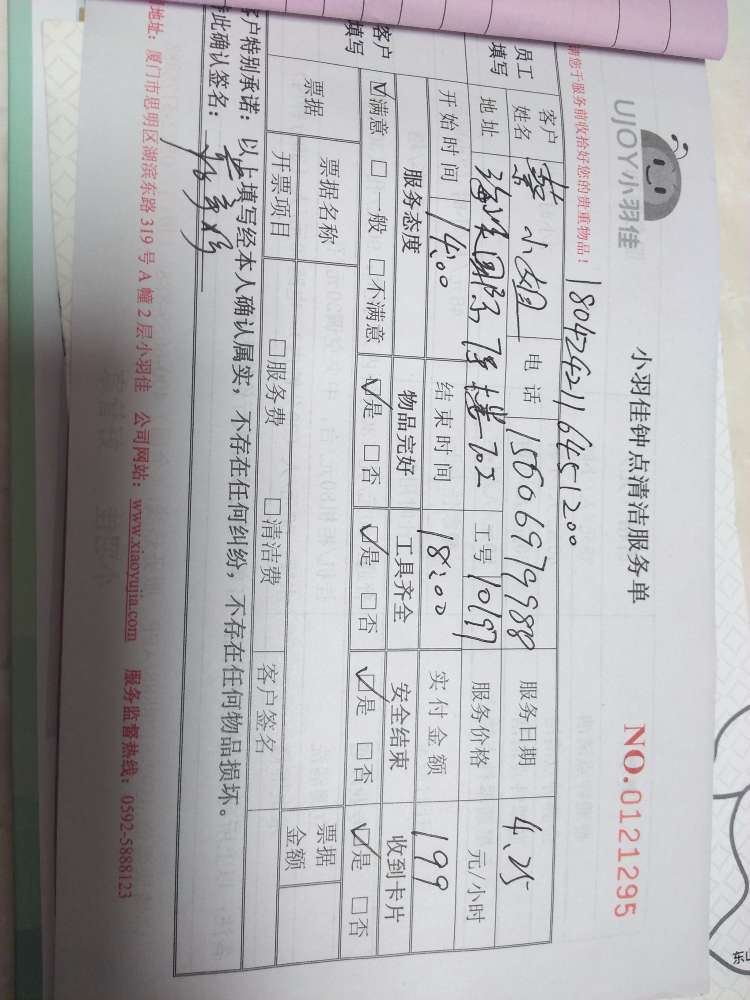 UJOY小羽佳
小羽佳钟点清洁服务单
NO.0121295
请您于服务前收拾好您的贵重物品！
1804242116451200
员工填写
客户姓名 黎小姐 电话 15606979988 服务日期 4.25
地址 海滨国际 工号 10197 服务价格 元/小时
开始时间 14:00 结束时间 18:00 实付金额 199
客户填写
服务态度 物品完好 工具齐全 安全结束 收到卡片
☑满意 □一般 □不满意 ☑是 □否 ☑是 □否 ☑是 □否 ☑是 □否
票据 票据名称 票据金额
开票项目 □服务费 □清洁费 客户签名
客户特别承诺：以上填写经本人确认属实，不存在任何纠纷，不存在任何物品损坏。
此确认签名：
地址：厦门市思明区湖滨东路319号A幢2层小羽佳 公司网站：www.xiaoyujia.com 服务监督热线：0592-5888123